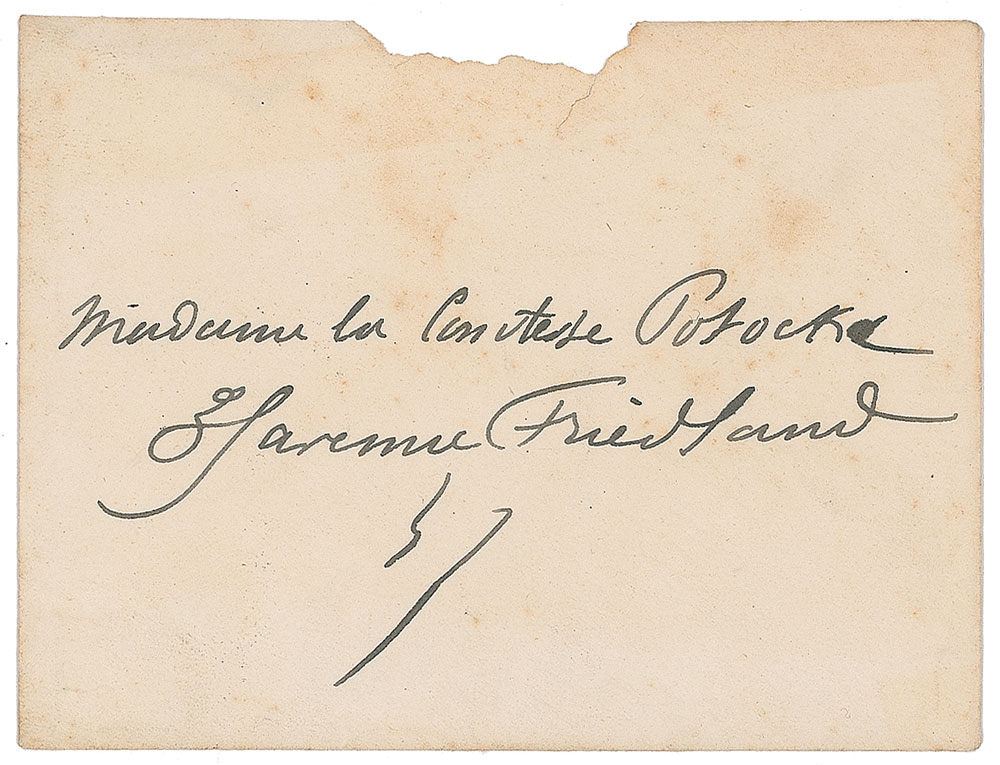 Madame la Comtesse Potocka
avenue Friedland